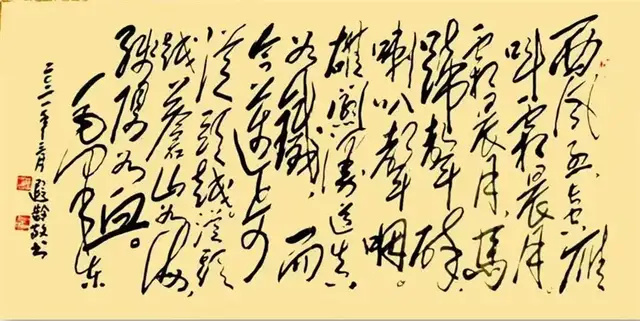 西风烈，长空雁
叫霜晨月。
霜晨月，馬
蹄聲碎，
喇叭聲咽。
雄关漫道真
如鐵，而
今迈步
从头越。从头
越，苍山如海，
残阳如血。
毛泽东
二〇二一年三月
遐龄敬书